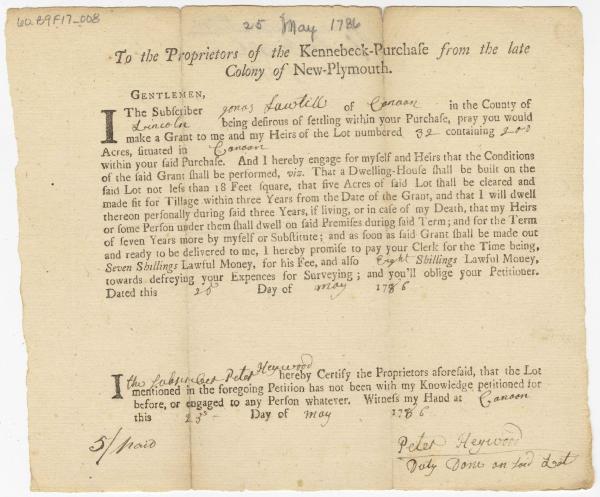 6a.B9F17_008
25 May 1786
To the Proprietors of the Kennebeck-Purchaſe from the late
Colony of New-Plymouth.
GENTLEMEN,
I The Subſcriber yonas Sawtill of Canaan in the County of
Lincoln being deſirous of ſettling within your Purchaſe, pray you would
make a Grant to me and my Heirs of the Lot numbered 32 containing 200
Acres, ſituated in Canaan
within your ſaid Purchaſe. And I hereby engage for myſelf and Heirs that the Conditions
of the ſaid Grant ſhall be performed, viz. That a Dwelling-Houſe ſhall be built on the
ſaid Lot not leſs than 18 Feet ſquare, that five Acres of ſaid Lot ſhall be cleared and
made fit for Tillage within three Years from the Date of the Grant, and that I will dwell
thereon perſonally during ſaid three Years, if living, or in caſe of my Death, that my Heirs
or ſome Perſon under them ſhall dwell on ſaid Premiſes during ſaid Term; and for the Term
of ſeven Years more by myſelf or Subſtitute; and as ſoon as ſaid Grant ſhall be made out
and ready to be delivered to me, I hereby promiſe to pay your Clerk for the Time being,
Seven Shillings Lawful Money, for his Fee, and alſo Eight Shillings Lawful Money,
towards defreying your Expences for Surveying; and you'll oblige your Petitioner.
Dated this 25 Day of may 1786
I the Subscriber Peter Heywood hereby Certify the Proprietors aforeſaid, that the Lot
mentioned in the foregoing Petition has not been with my Knowledge petitioned for
before, or engaged to any Perſon whatever. Witneſs my Hand at Canaan
this 25 Day of may 1786
5/ paid
Peter Heywood
Duty Done on said Lot